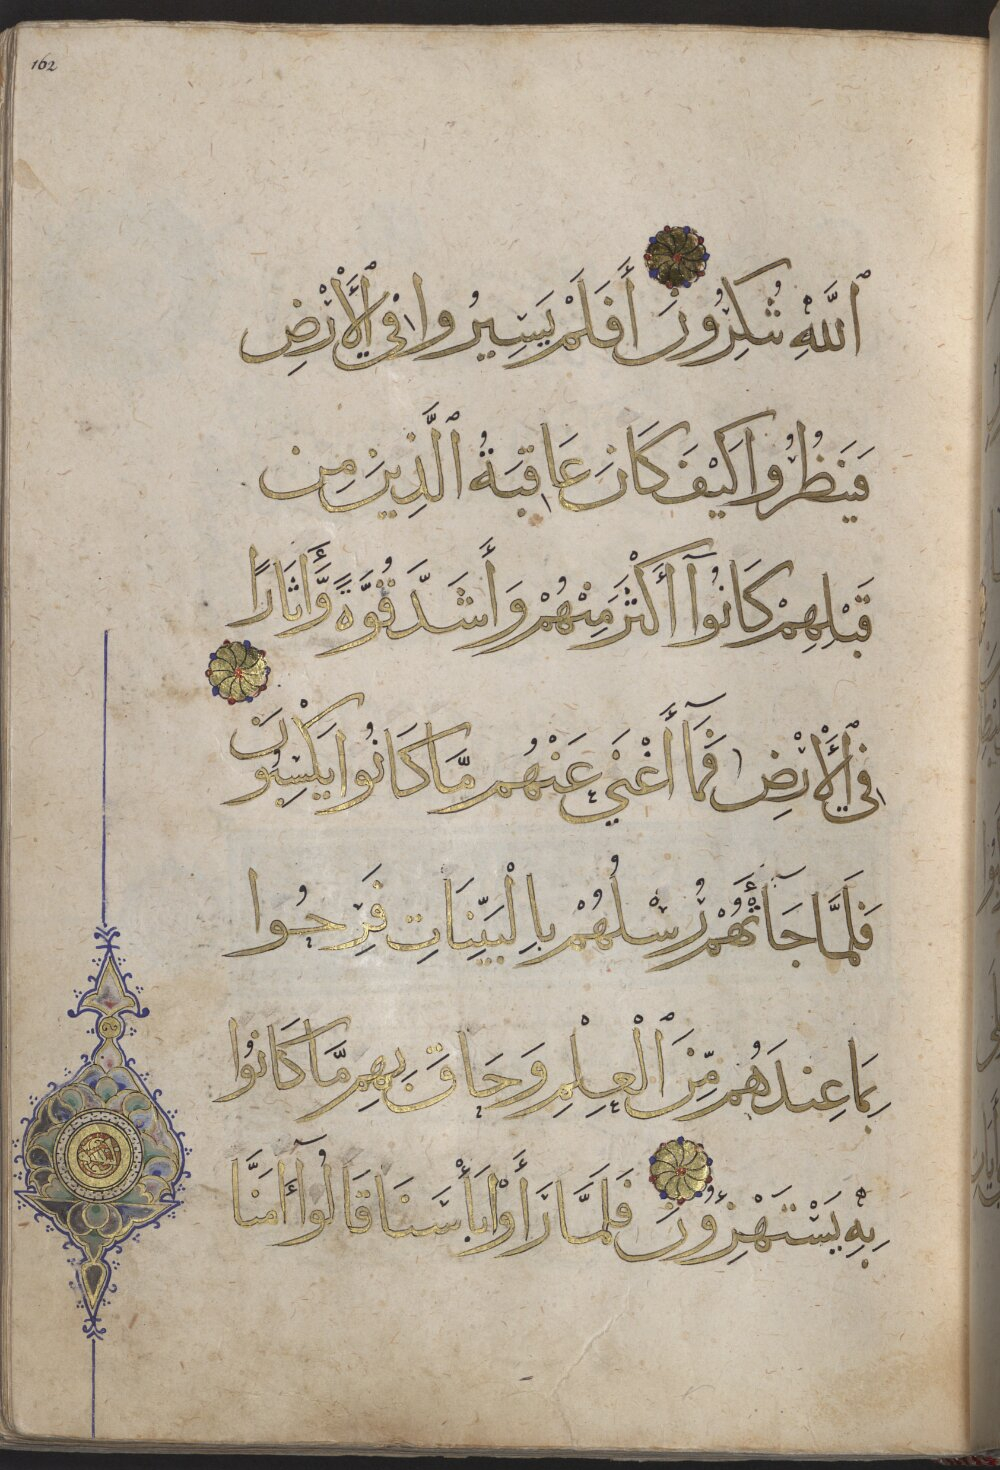 162
ٱللَّهِ تُنكِرُونَ أَفَلَمْ يَسِيرُوا فِي ٱلْأَرْضِ
فَيَنظُرُوا كَيْفَ كَانَ عَاقِبَةُ ٱلَّذِينَ مِن
قَبْلِهِمْ كَانُوٓا أَكْثَرَ مِنْهُمْ وَأَشَدَّ قُوَّةً وَّأَثَارًا
فِي ٱلْأَرْضِ فَمَآ أَغْنَي عَنْهُم مَّا كَانُوا يَكْسِبُونَ
فَلَمَّا جَآءَتْهُمْ رُسْلُهُمْ بِالْبَيِّنَاتِ فَرِحُوا
بِمَا عِندَهُم مِّنَ ٱلْعِلْمِ وَحَاقَ بِهِم مَّا كَانُوا
بِهِ يَسْتَهْزِءُونَ فَلَمَّا رَأَوْا بَأْسَنَا قَالُوٓا ءَامَنَّا